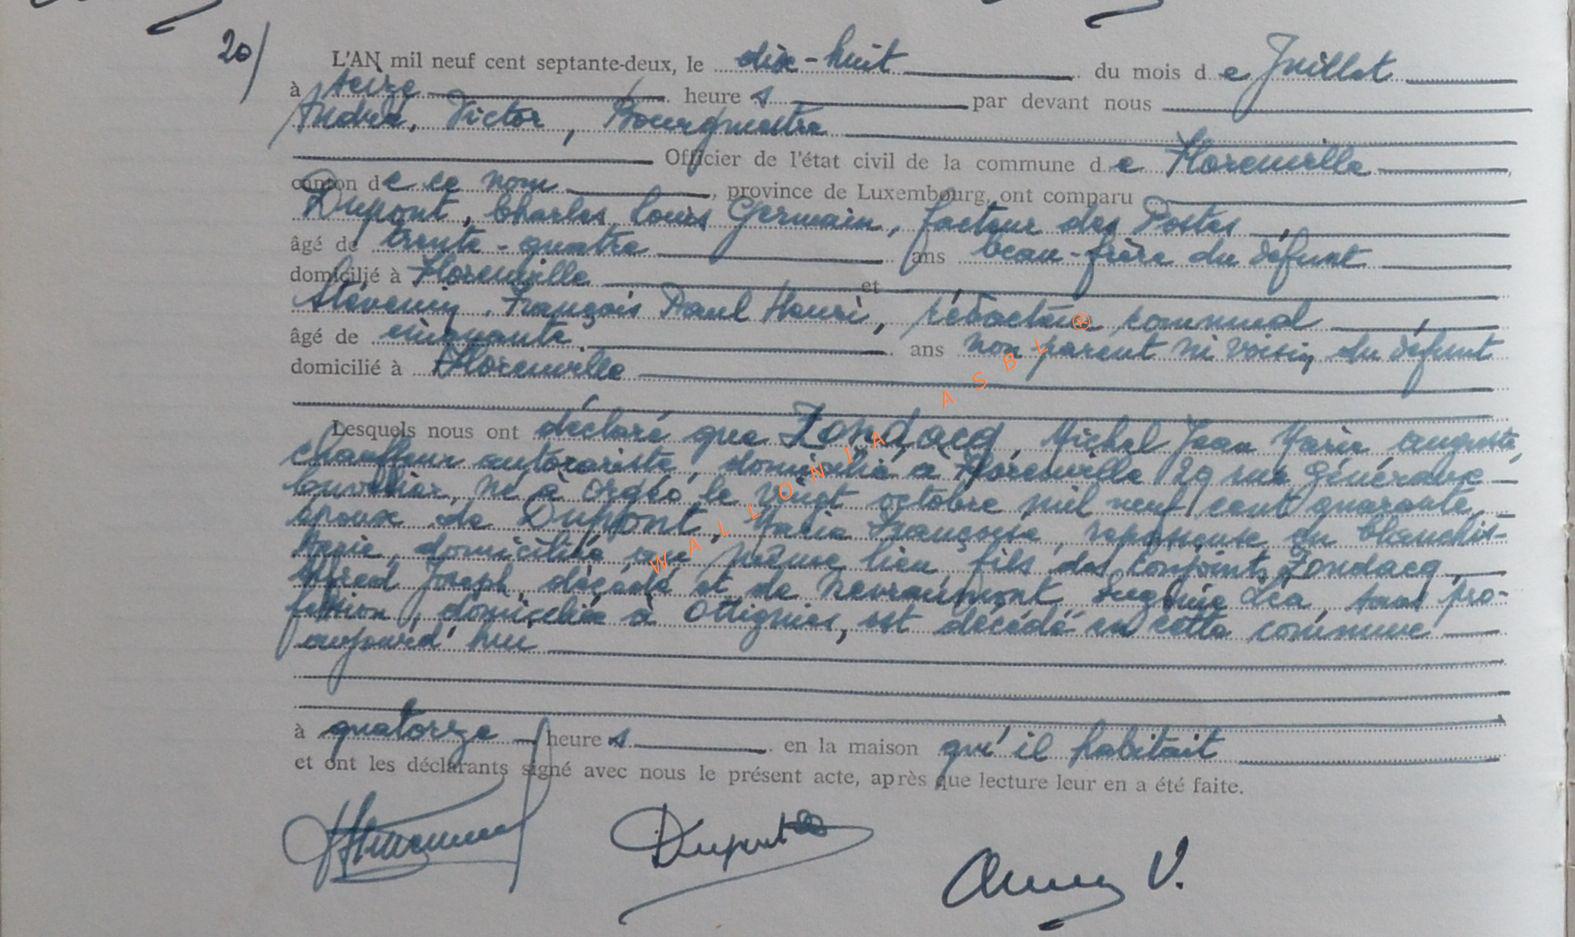 20/
L'AN mil neuf cent septante-deux, le dix-huit du mois de Juillet
à seize heures par devant nous
André, Victor, Bourgmestre
Officier de l'état civil de la commune de Florenville
canton de ce nom, province de Luxembourg, ont comparu
Dupont, Charles Louis Germain, facteur des Postes,
âgé de trente-quatre ans beau-frère du défunt
domicilié à Florenville et
Stévenin, François Paul Henri, rédacteur communal,
âgé de cinquante ans non parent ni voisin du défunt
domicilié à Florenville
Lesquels nous ont déclaré que Zondacq, Michel Jean Marie Auguste,
chauffeur autocariste, domicilié à Florenville 29 rue Généraux
Cuvelier, né à Orgéo le vingt octobre mil neuf cent quarante,
époux de Dupont, Maria Françoise, repasseuse en blanchis-
serie, domiciliée au même lieu, fils des conjoints Zondacq,
Alfred Joseph, décédé et de Nevraumont Eugénie Léa, sans pro-
fession, domiciliée à Ottignies, est décédé en cette commune
aujourd'hui
à quatorze heures en la maison qu'il habitait
et ont les déclarants signé avec nous le présent acte, après que lecture leur en a été faite.
Dupont
V.
WALLONIA ASBL ®